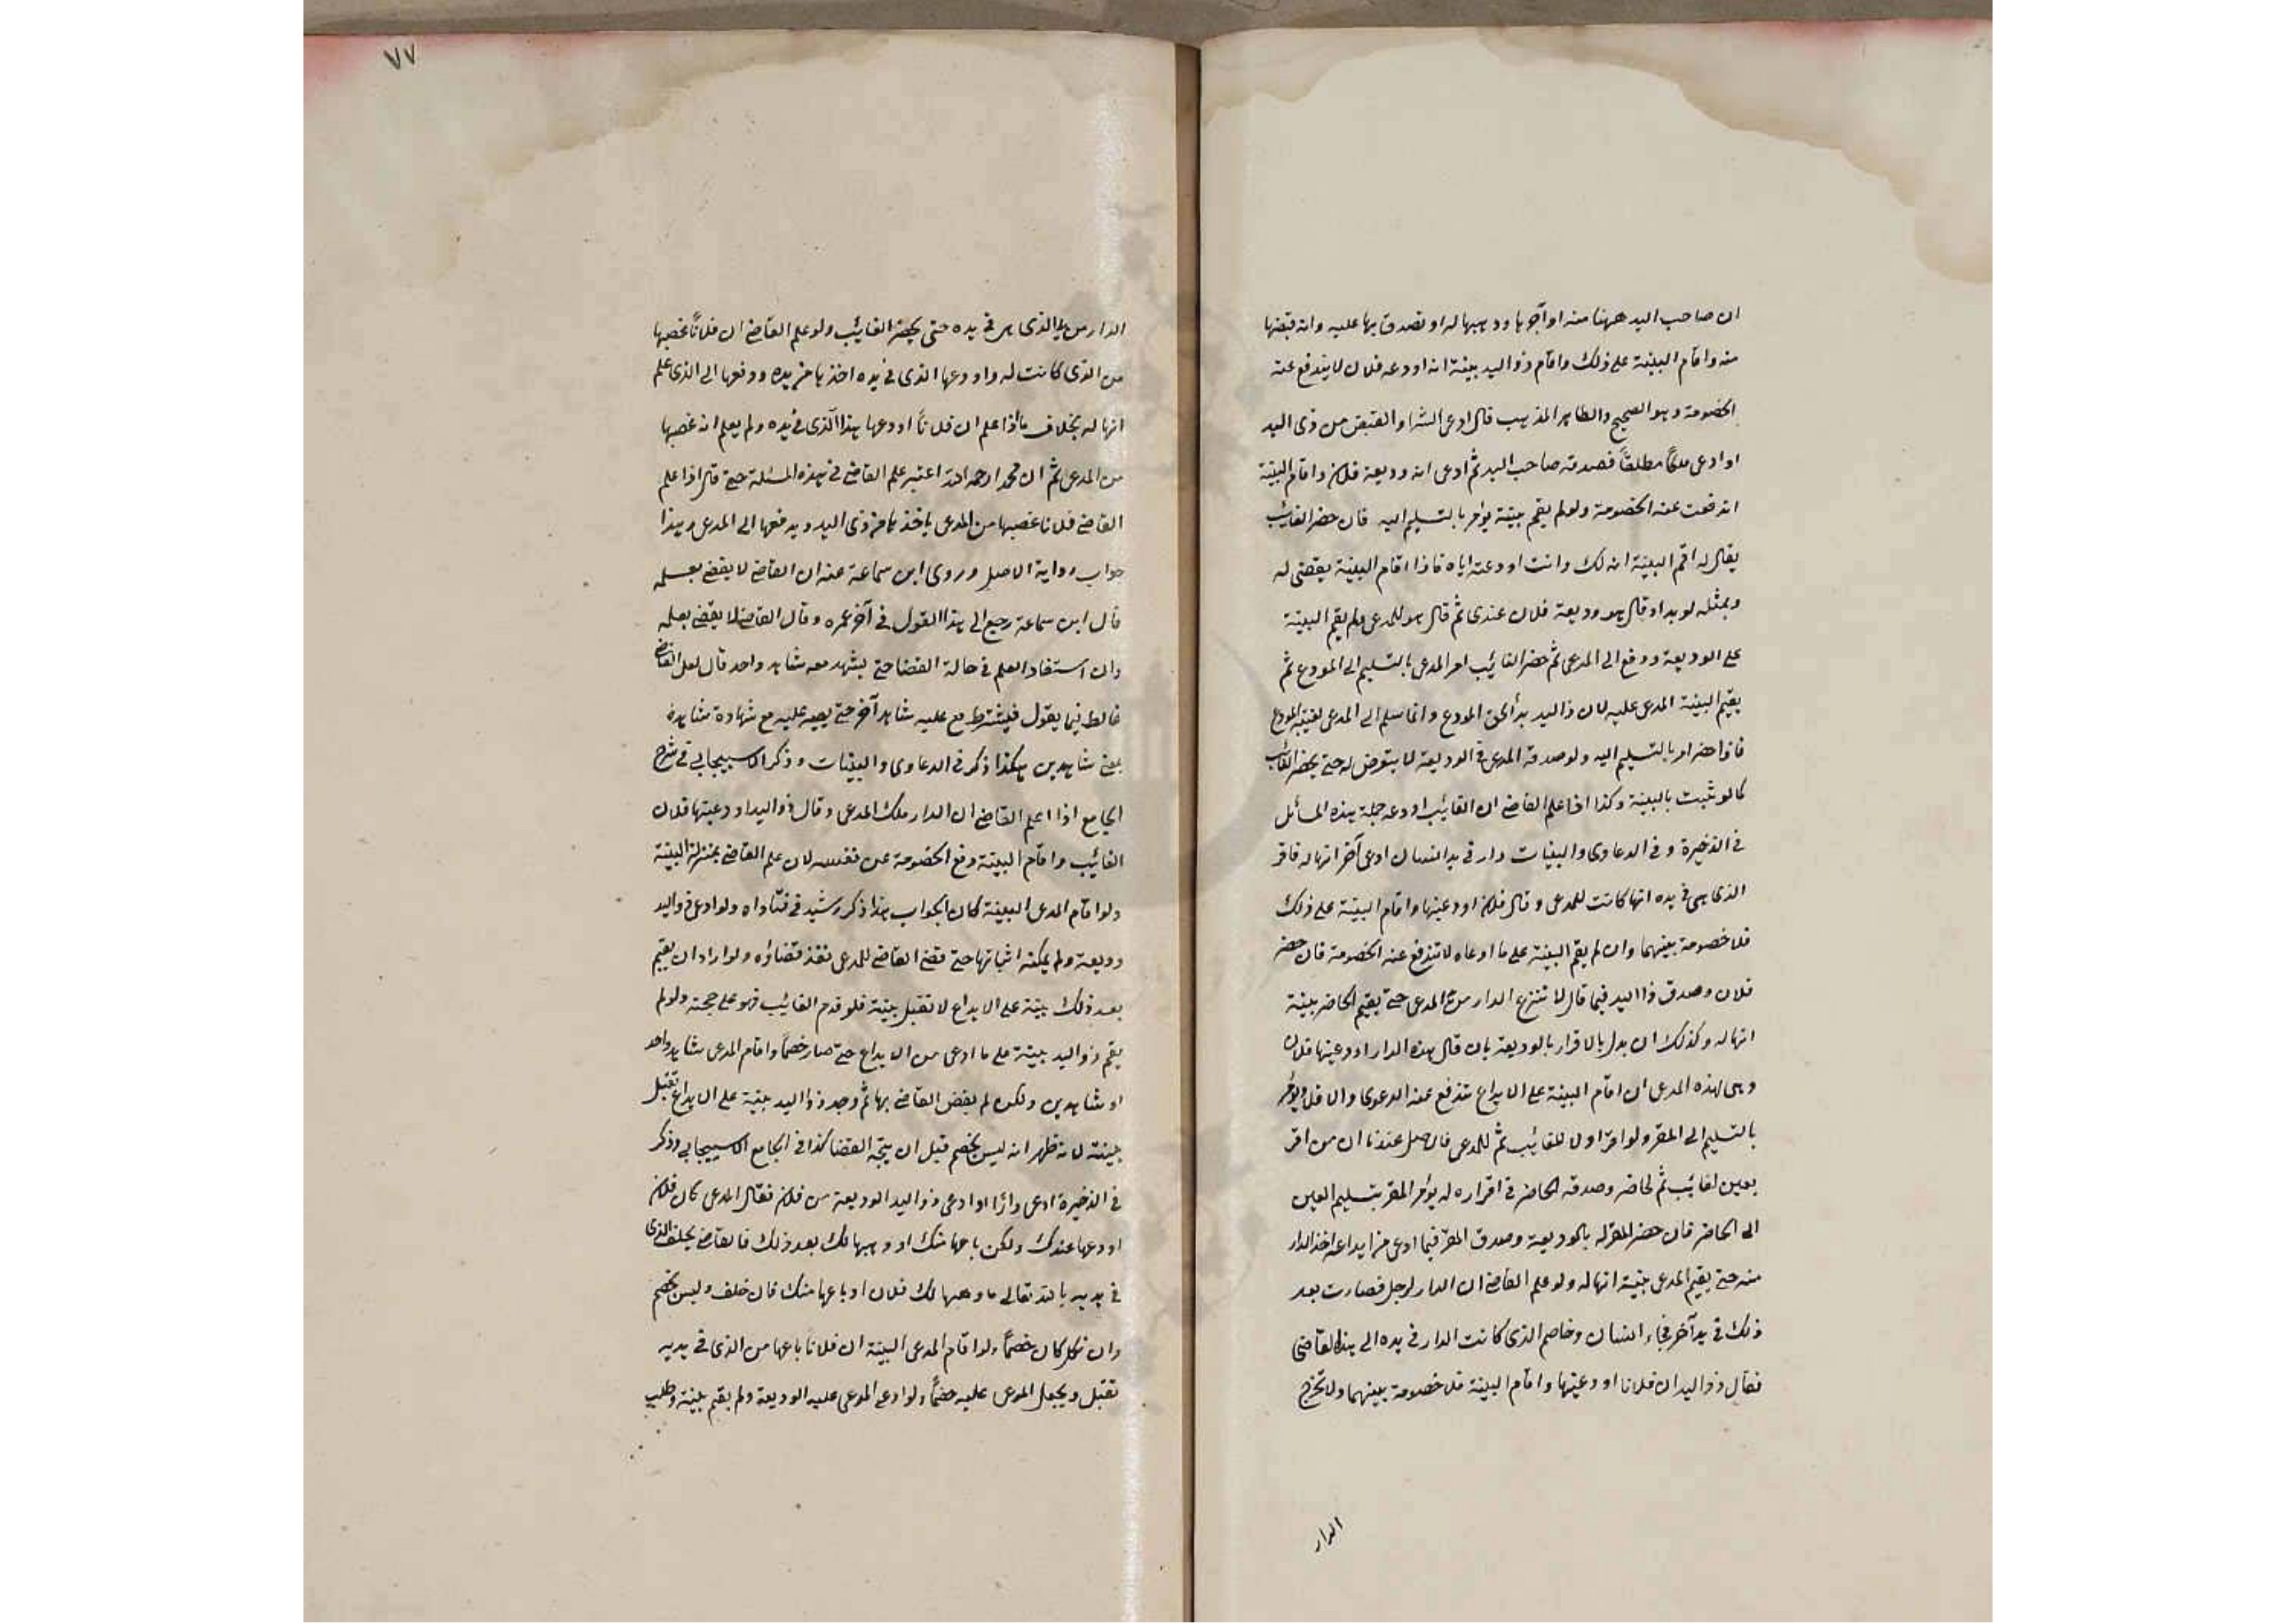 ان صاحب اليد ههنا منه او آجرها او وهبها له او تصدق بها عليه وانه قبضها
منه واقام البينة على ذلك واقام ذو اليد بينة انه اودعه فلان لا يندفع عنه
الخصومة وهو الصحيح والظاهر المذهب قال ادعى الشرا والقبض من ذى اليد
او ادعى ملكًا مطلقًا فصدقه صاحب اليد ثم ادعى انه وديعة فلان واقام البينة
اندفعت عنه الخصومة ولو لم يقم بينة يؤمر بالتسليم اليه فان حضر الغائب
يقال له اقم البينة انه لك وانت اودعته اياه فاذا اقام البينة يقضى له
وبمثله لو بدا وقال هو وديعة فلان عندى ثم قال هو للمدعى ولم يقم البينة
على الوديعة ودفع الى المدعى ثم حضر الغائب امر المدعى بالتسليم الى المودع ثم
يقيم البينة المدعى عليه لان ذا اليد بدأ بحق المودع وانما سلم الى المدعى لغيبة المودع
فاذا حضر امر بالتسليم اليه ولو صدقه المدعى فى الوديعة لا يتعرض له حتى يحضر الغائب
كما لو ثبت بالبينة وكذا اذا علم القاضى ان الغائب اودعه جملة هذه المسائل
فى الذخيرة وفى الدعاوى والبينات دار فى يد انسان ادعى آخر انها له فاقر
الذى هى فى يده انها كانت للمدعى وقال فلان اودعنيها واقام البينة على ذلك
فلا خصومة بينهما وان لم يقم البينة على ما ادعاه لا تندفع عنه الخصومة فان حضر
فلان وصدق ذا اليد فيما قال لا تنزع الدار من المدعى حتى يقيم الحاضر بينة
انها له وكذلك ان بدل بالاقرار بالوديعة بان قال هذه الدار اودعنيها فلان
وهى لهذه المدعى ان اقام البينة على الايداع تندفع عنه الدعوى والا فلا ويؤمر
بالتسليم الى المقر ولو اقر اولا للغائب ثم للمدعى فان اصل عندنا ان من اقر
بعين لغائب ثم لحاضر وصدقه الحاضر فى اقراره له يؤمر المقر بتسليم العين
الى الحاضر فان حضر المقر له بالوديعة وصدق المقر فيما ادعى من ايداعه اخذ الدار
منه حتى يقيم المدعى بينة انها له ولو علم القاضى ان الدار لرجل فصارت بعد
ذلك فى يد آخر فجاء انسان وخاصم الذى كانت الدار فى يده الى هذا القاضى
فقال ذو اليد ان فلانا اودعنيها واقام البينة فلا خصومة بينهما ولا تخرج
الدار
٧٧
الدار من يد الذى هى فى يده حتى يحضر الغائب ولو علم القاضى ان فلانًا غصبها
من الذى كانت له واودعها الذى فى يده اخذها من يده ودفعها الى الذى علم
انها له بخلاف ما اذا علم ان فلانًا اودعها هذا الذى فى يده ولم يعلم انه غصبها
من المدعى ثم ان محمدا رحمه الله اعتبر علم القاضى فى هذه المسئلة حتى قال اذا علم
القاضى فلانا غصبها من المدعى ياخذها من ذى اليد ويدفعها الى المدعى وهذا
جواب رواية الاصل وروى ابن سماعة عنه ان القاضى لا يقضى بعلمه
قال ابن سماعة رجع الى هذا القول فى آخر عمره وقال القاضى لا يقضى بعلمه
وان استفاد العلم فى حالة القضا حتى يشهد معه شاهد واحد قال لعل القاضى
غالط فيما يقول فيشترط مع عليه شاهد آخر حتى يصير عليه مع شهادة شاهده
بمعنى شاهدين هكذا ذكر فى الدعاوى والبينات وذكر الاسبيجابى فى شرح
الجامع اذا اعلم القاضى ان الدار ملك المدعى وقال ذو اليد اودعنيها فلان
الغائب واقام البينة دفع الخصومة عن نفسه لان علم القاضى بمنزلة البينة
ولو اقام المدعى البينة كان الجواب هذا ذكر رشيد فى فتاواه ولو ادعى ذو اليد
وديعة ولم يمكنه اثباتها حتى قضى القاضى للمدعى نفذ قضاؤه ولو اراد ان يقيم
بعد ذلك بينة على الايداع لا تقبل بينة فلو قدم الغائب فهو على حجته ولو لم
يقم ذو اليد بينة على ما ادعى من الايداع حتى صار خصمًا واقام المدعى شاهد واحد
او شاهدين ولكن لم يقض القاضى بها ثم وجد ذو اليد بينة على الايداع تقبل
بينته لانه ظهر انه ليس بخصم قبل ان يتجه القضا كذا فى الجامع الاسبيجابى وذكر
فى الذخيرة ادعى دارًا او ادعى ذو اليد الوديعة من فلان فقال المدعى كان فلان
اودعها عندك ولكن باعها منك او وهبها لك بعد ذلك فالقاضى يحلف الذى
فى يديه بالله تعالى ما وهبها لك فلان او باعها منك فان حلف وليس بخصم
وان نكل كان خصمًا ولو اقام المدعى البينة ان فلانا باعها من الذى فى يديه
تقبل ويجعل المدعى عليه خصمًا ولو ادعى المدعى عليه الوديعة ولم يقم بينة وطلب